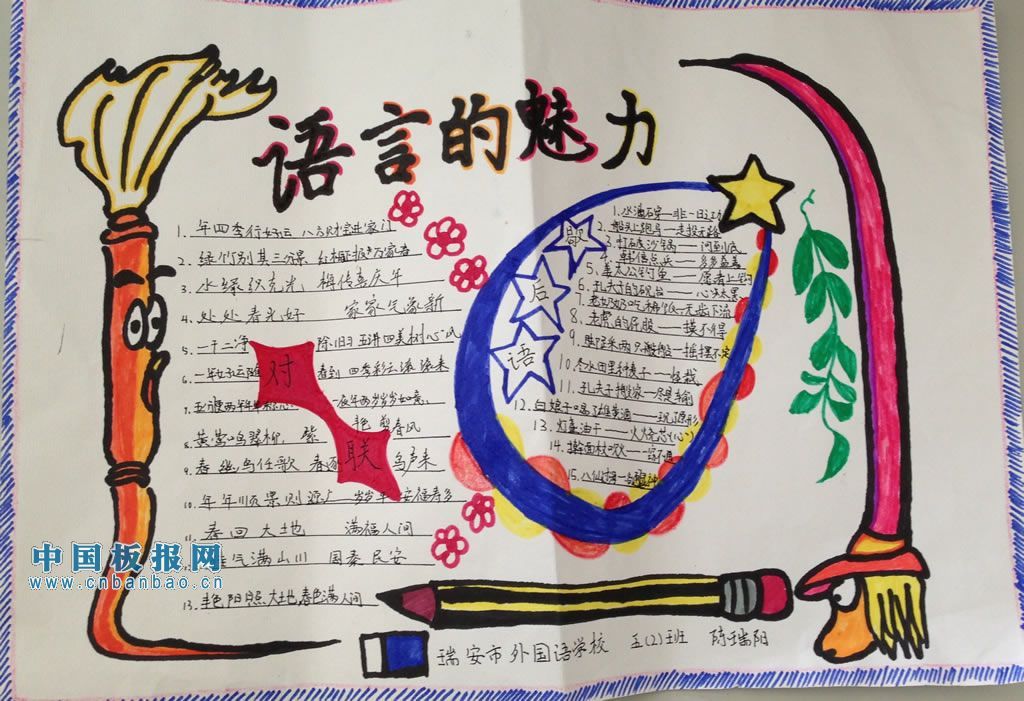 语言的魅力
1. 年四季行好运 八方财宝进家门
2. 绿竹别其三分景 红梅正报万家春
3. 水绿 光 梅传喜庆年
4. 处处春光好 家家气象新
5. 一干二净 除旧 五讲四美树心风
6. 一年好运随 到 四季彩云滚滚来
7.
8. 黄莺鸣翠柳, 紫 艳剪春风
9. 春 鸟任歌 春 鸟声来
10. 年年顺景则源广 岁岁平安福寿多
春回大地 满福人间
气满山川 国泰民安
13. 艳阳照大地 春色满人间
对联
歇后语
1. 水滴石穿——非一日之功
2. 船头上跑马——走投无路
3. 打石 沙锅——问到底
4. 韩信点兵——多多益善
5. 姜太公钓鱼——愿者上钩
6. 孔夫 的砚台——心 太黑
7. 老奶奶吃 ——无 下流
8. 老虎的屁股——摸不得
9. 脚踩两只船——摇摆不定
10. 冬水田里种麦子——怪哉
11. 孔夫子搬家——尽是输
12. 白娘子喝雄黄酒——现了原形
13. 灯盏油干——火烧芯(心)
14. 擀面杖吹火——一窍不通
15. 八仙过海——
瑞安市外国语学校 五(2)班 陈瑞阳
中国板报网
www.cnbanbao.cn